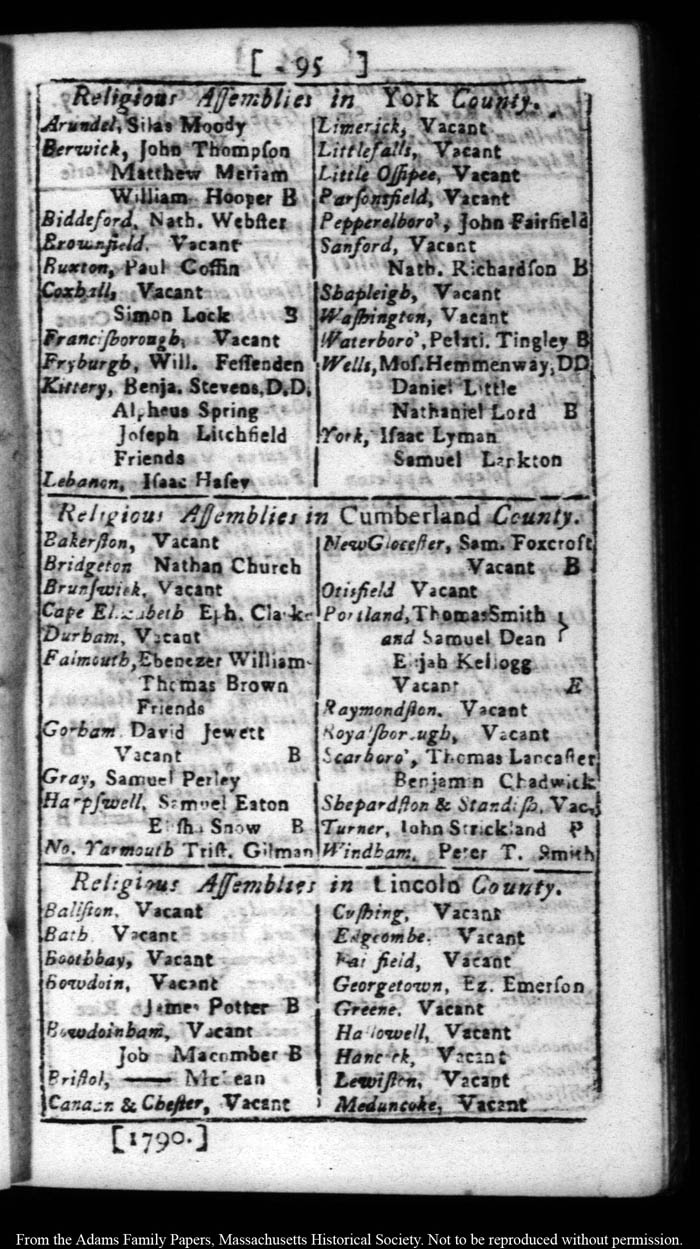 [ 95 ]
Religious Aſſemblies in York County.
Arundel, Silas Moody
Berwick, John Thompſon
Matthew Meriam
William Hooper B
Biddeford, Nath. Webſter
Brownfield, Vacant
Buxton, Paul Coffin
Coxhall, Vacant
Simon Lock B
Franciſborough, Vacant
Fryburgh, Will. Feſſenden
Kittery, Benja. Stevens, D.D.
Alpheus Spring
Joſeph Litchfield
Friends
Lebanon, Iſaac Haſey
Limerick, Vacant
Littlefalls, Vacant
Little Oſſipee, Vacant
Parſonsfield, Vacant
Pepperelboro', John Fairfield
Sanford, Vacant
Nath. Richardſon B
Shapleigh, Vacant
Waſhington, Vacant
Waterboro', Pelati. Tingley B
Wells, Moſ. Hemmenway, DD
Daniel Little
Nathaniel Lord B
York, Iſaac Lyman
Samuel Larkton
Religious Aſſemblies in Cumberland County.
Bakerſton, Vacant
Bridgeton Nathan Church
Brunſwick, Vacant
Cape Elizabeth Eph. Clarke
Durham, Vacant
Falmouth, Ebenezer William-
Thomas Brown
Friends
Gorham David Jewett
Vacant B
Gray, Samuel Perley
Harpſwell, Samuel Eaton
Eliſha Snow B
No. Yarmouth Triſt. Gilman
New Gloceſter, Sam. Foxcroft
Vacant B
Otisfield Vacant
Portland, Thomas Smith
and Samuel Dean }
Elijah Kellogg
Vacant E
Raymondſton, Vacant
Royalſborough, Vacant
Scarboro', Thomas Lancaſter
Benjamin Chadwick
Shepardſton & Standiſh, Vac.
Turner, John Strickland P
Windham, Peter T. Smith
Religious Aſſemblies in Lincoln County.
Balliſton, Vacant
Bath Vacant
Boothbay, Vacant
Bowdoin, Vacant
James Potter B
Bowdoinham, Vacant
Job Macomber B
Briſtol, —— McLean
Canaan & Cheſter, Vacant
Cuſhing, Vacant
Edgcombe, Vacant
Fairfield, Vacant
Georgetown, Ez. Emerſon
Greene, Vacant
Hallowell, Vacant
Hancock, Vacant
Lewiſton, Vacant
Meduncoke, Vacant
[1790.]
From the Adams Family Papers, Massachusetts Historical Society. Not to be reproduced without permission.